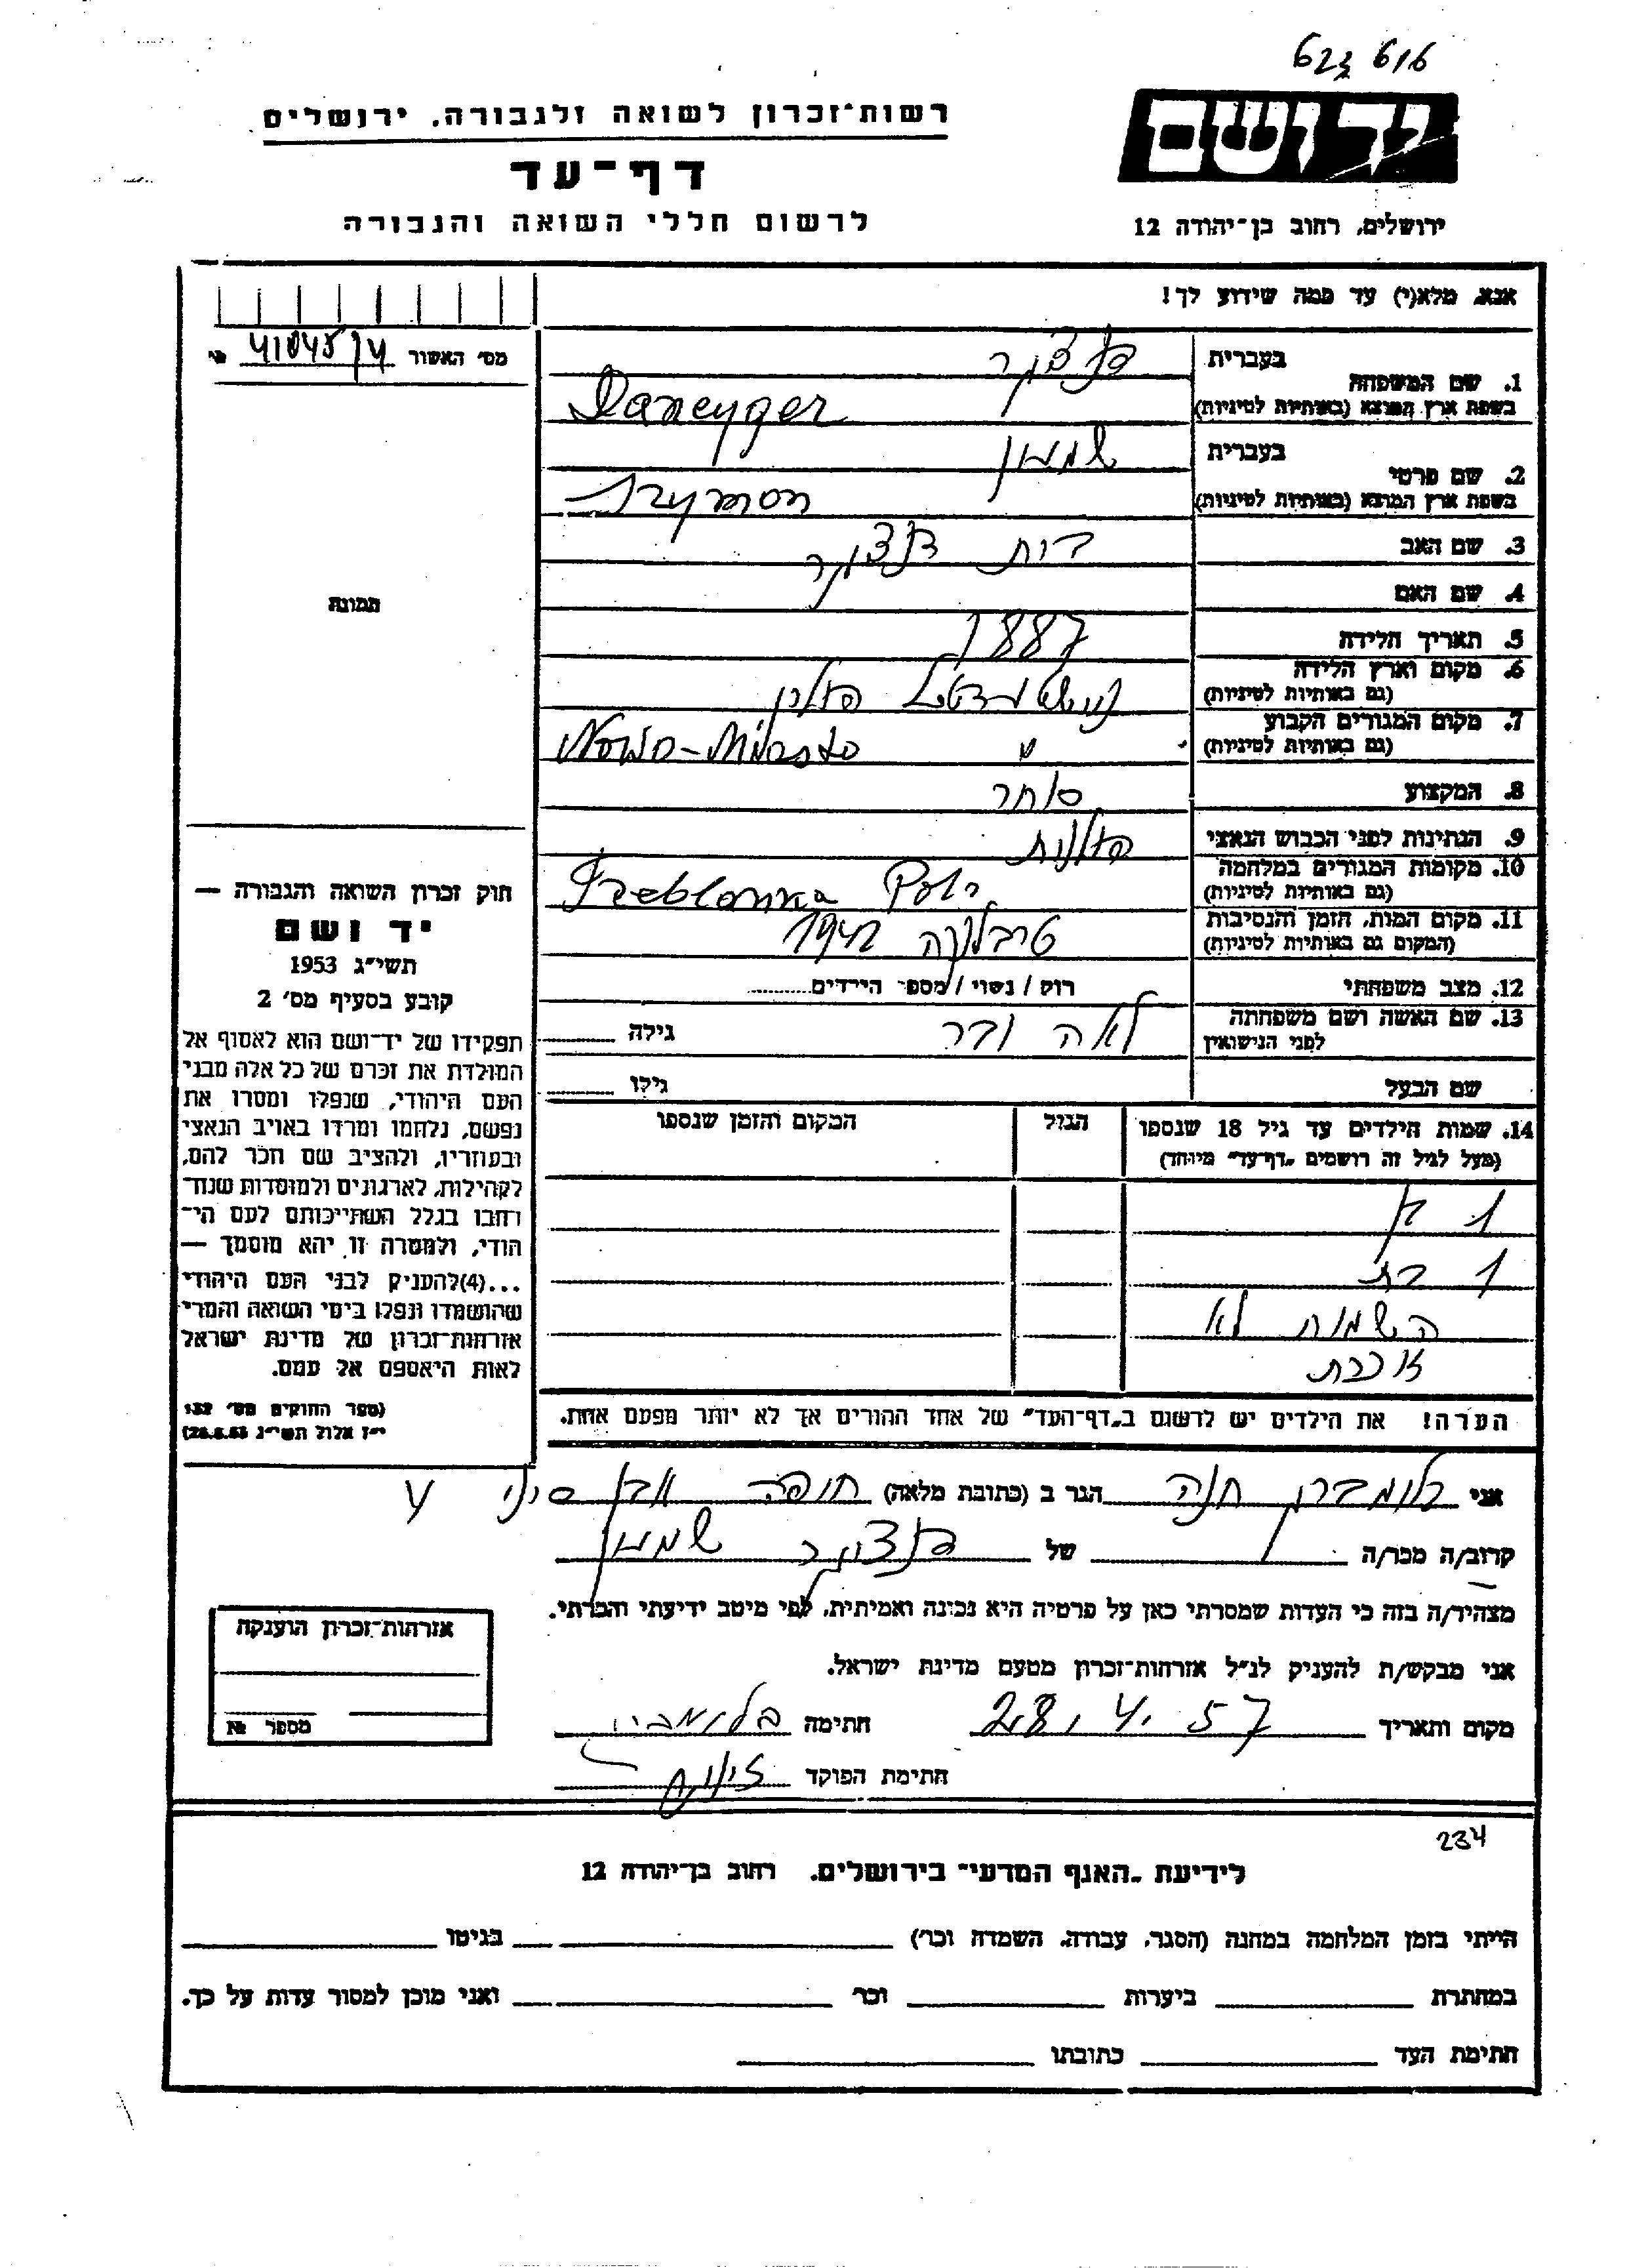 623 616
יד ושם
רשות־זכרון לשואה ולגבורה, ירושלים
דף־עד
לרשום חללי השואה והגבורה
ירושלים, רחוב בן־יהודה 12
אנא, מלא(י) עד כמה שידוע לך!
מס׳ האשור
בעברית דנציגר
1. שם המשפחה
בשפת ארץ המוצא (באותיות לטיניות) Dancyger
בעברית שמעון
2. שם פרטי
בשפת ארץ המוצא (באותיות לטיניות) Szymon
3. שם האב דוד דנציגר
4. שם האם
5. תאריך הלידה 1887
6. מקום וארץ הלידה פולין
(גם באותיות לטיניות)
7. מקום המגורים הקבוע " Nowo-Miasto
(גם באותיות לטיניות)
8. המקצוע סוחר
9. הנתינות לפני הכבוש הנאצי פולנית
10. מקומות המגורים במלחמה
(גם באותיות לטיניות) Treblonka
11. מקום המות, הזמן והנסיבות טרבלינקה 1942
(המקום גם באותיות לטיניות)
12. מצב משפחתי רוק / נשוי / מספר הילדים
13. שם האשה ושם משפחתה לאה גילה
לפני הנישואין
שם הבעל גילו
14. שמות הילדים עד גיל 18 שנספו הגיל המקום והזמן שנספו
(מעל לגיל זה רושמים „דף־עד" מיוחד)
1 בן
1 בת
השמות לא
זוכרת
הערה! את הילדים יש לרשום ב„דף־העד" של אחד ההורים אך לא יותר מפעם אחת.
תמונה
חוק זכרון השואה והגבורה —
יד ושם
תשי"ג 1953
קובע בסעיף מס׳ 2
תפקידו של יד־ושם הוא לאסוף אל
המולדת את זכרם של כל אלה מבני
העם היהודי, שנפלו ומסרו את
נפשם, נלחמו ומרדו באויב הנאצי
ובעוזריו, ולהציב שם וזכר להם,
לקהילות, לארגונים ולמוסדות שנח־
רבו בגלל השתייכותם לעם הי־
הודי, ולמטרה זו יהא מוסמך —
...(4)להעניק לבני העם היהודי
שהושמדו ונפלו בימי השואה והמרי
אזרחות־זכרון של מדינת ישראל
לאות היאספם אל עמם.
(ספר החוקים מס׳ 132
י"ז אלול תשי"ג 28.8.53)
אני בלומברג חנה הגר ב (כתובת מלאה) חיפה אבן סיני 4
קרוב/ה מכר/ה של דנציגר שמעון
מצהיר/ה בזה כי העדות שמסרתי כאן על פרטיה היא נכונה ואמיתית, לפי מיטב ידיעתי והכרתי.
אני מבקש/ת להעניק לנ"ל אזרחות־זכרון מטעם מדינת ישראל.
מקום ותאריך 28.4.57 חתימה
חתימת הפוקד
אזרחות־זכרון הוענקה
מספר №
234
לידיעת „האגף המדעי" בירושלים, רחוב בן־יהודה 12
הייתי בזמן המלחמה במחנה (הסגר, עבודה, השמדה וכו׳) בגיטו
במחתרת ביערות וכו׳ ואני מוכן למסור עדות על כך.
חתימת העד כתובתו